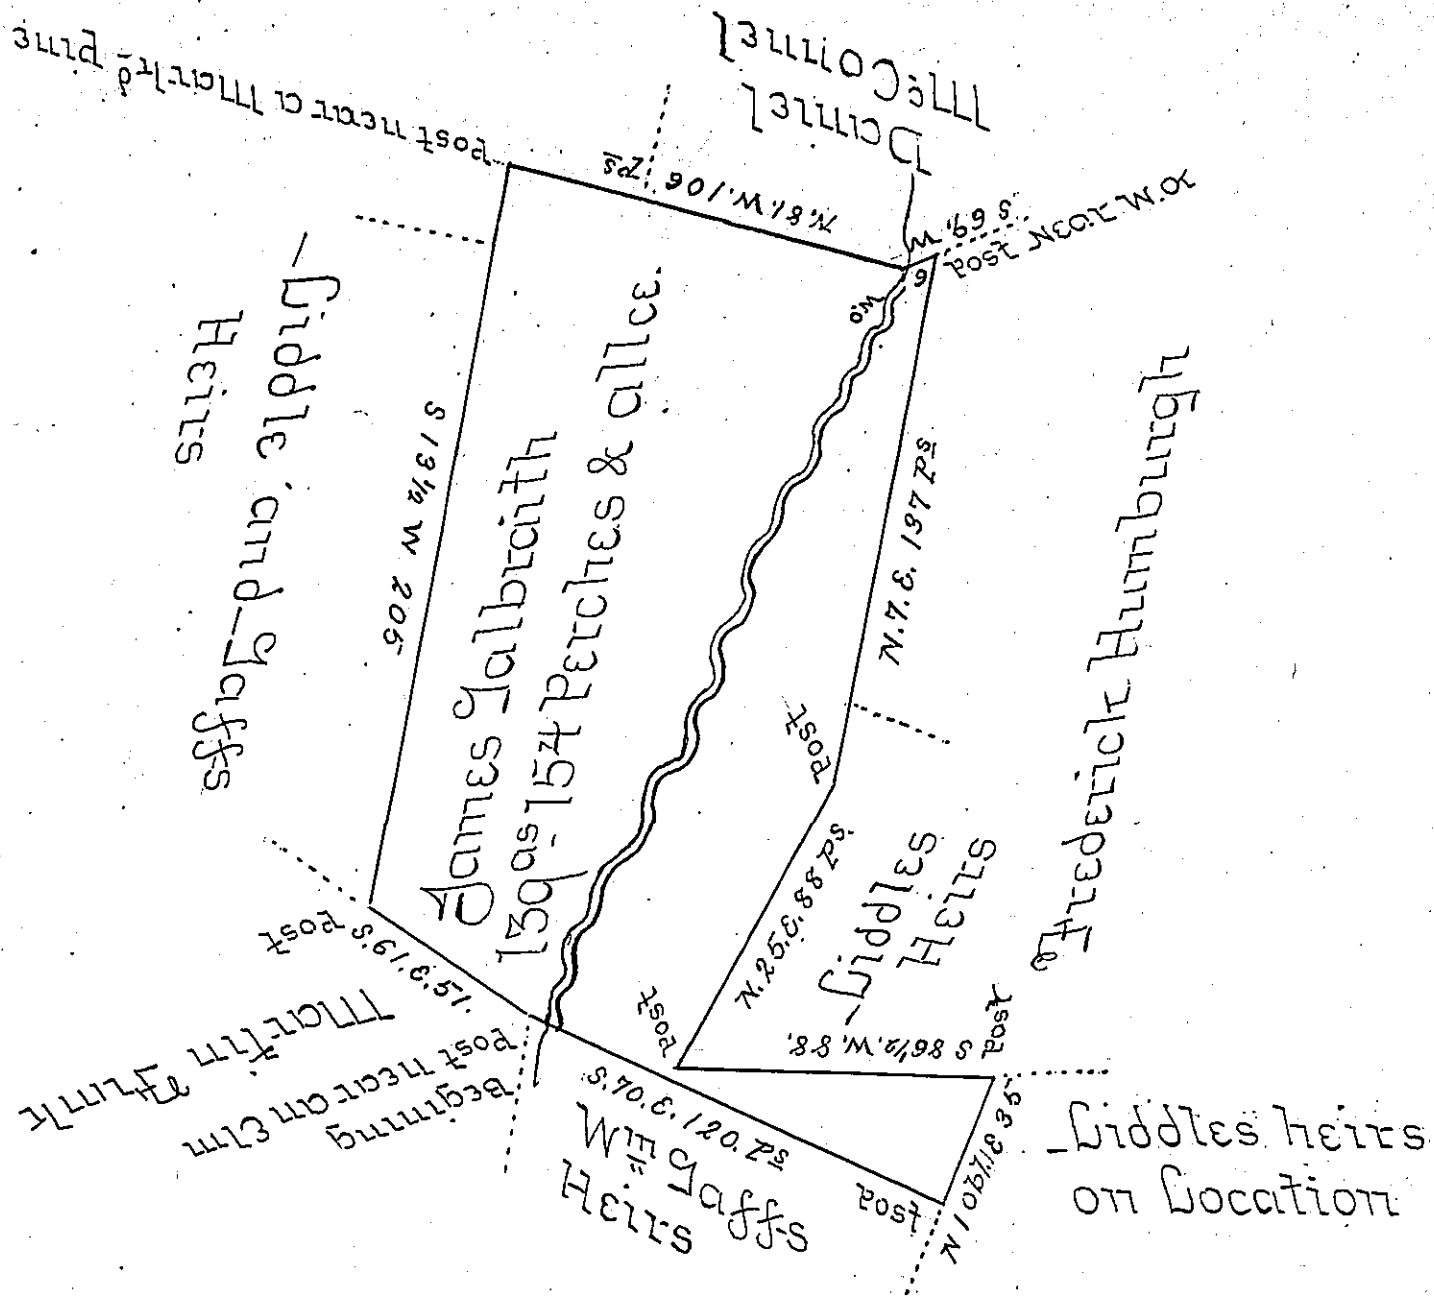 Post near a Mark.d pine
Daniel
McConnel
N.81.W.106 Ps
S 69 W
6
Post
W.O
Liddle, and Gaffs
Heirs
S 13 1/2 W 205
James Galbraith
139 as 154 Perches & allce.
N.7.E. 137 Ps
Frederick Humburgh
Post
N.25.E.88 Ps.
Liddles
Heirs
Post
S 86 1/2.W.88.
Post
Post
S.61.E.51.
Martin Funk
Begining
Post near an Elm
S.70.E.120.Ps
Wm Gaffs
Heirs
Post
Liddles heirs
on Location